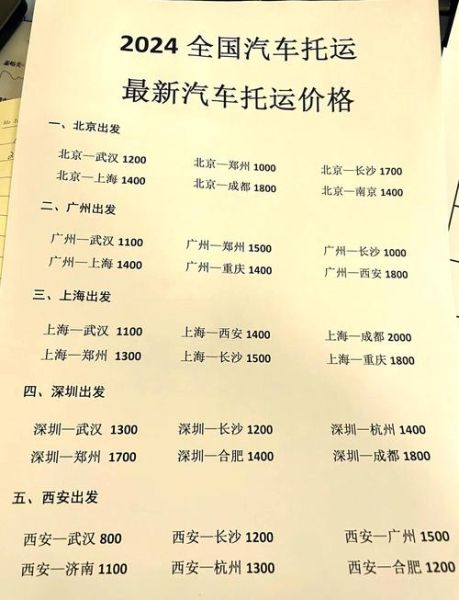 2024 全国汽车托运
最新汽车托运价格
一、北京出发
北京—武汉 1200 北京—郑州 1000 北京—长沙 1700
北京—上海 1400 北京—成都 1800 北京—南京 1400
二、广州出发
广州—武汉 1100 广州—郑州 1500 广州—长沙 1000
广州—上海 1400 广州—重庆 1400 广州—西安 1800
三、上海出发
上海—武汉 1100 上海—西安 1400 上海—成都 2000
上海—郑州 1300 上海—长沙 1500 上海—重庆 1800
四、深圳出发
深圳—武汉 1300 深圳—长沙 1200 深圳—杭州 1400
深圳—郑州 1700 深圳—合肥 1400 深圳—成都 1800
五、西安出发
西安—武汉 800 西安—长沙 1200 西安—广州 1500
西安—济南 1100 西安—杭州 1300 西安—合肥 1200